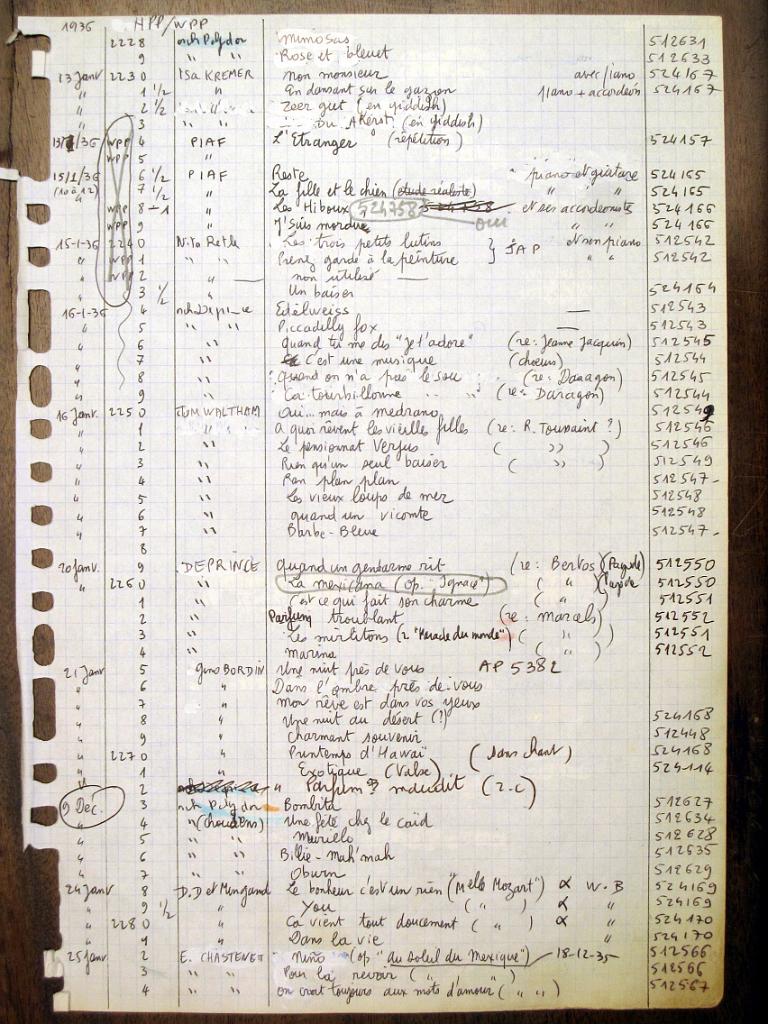 1936 HPP/WPP
2228 orch Polydor Mimosas 512631
9 " " Rose et bleuet 512633
13 Janv 2230 Isa KREMER mon monsieur avec piano 524167
" 1 1/2 " En dansant sur le gazon piano + accordéon 524167
" 2 1/2 Zeer gut (en yiddish)
" 3 " " Du Akerst (en yiddish)
/36 WPP 4 PIAF L'Etranger (répétition) 524157
WPP 5 "
15/1/36 6 1/2 PIAF Reste piano et guitare 524165
(10 à 12) 7 1/2 " La fille et le chien (étude réaliste) " " 524165
" WPP 8-1 " Les Hiboux 524758 et ses accordéonistes 524166
WPP 9 " J'suis mordue oui " " 524166
15-1-36 2240 Nito Retle Les trois petits lutins } JAP et son piano 512542
" WPP 1 " Prenez garde à la peinture " " 512542
" WPP 2 " — non utilisé —
" 3 1/2 Un baiser 524164
16-1-36 4 Edelweiss — 512543
" 5 " " Piccadilly fox — 512543
" 6 " " quand tu me dis "Je t'adore" (re: Jeanne Jacquin) 512545
" 7 " " C'est une musique (choeurs) 512544
" 8 " " Quand on n'a pas le sou (re: Daragon) 512545
" 9 " " La tourbillonne (re: Daragon) 512544
16 Janv. 2250 TOM WALTHAM Oui... mais à medrano 512549
" 1 " " A quoi rêvent les vieilles filles (re: R. Toussaint ?) 512546
" 2 " " Le pensionnat Verpus ( " ) 512546
" 3 " " Rien qu'un seul baiser ( " ) 512549
" 4 " " Ran plan plan 512547-
" 5 " " Les vieux loups de mer 512548
" 6 " " quand un vicomte 512548
" 7 " " Barbe-Bleue 512547-
8
20 Janv. 9 DEPRINCE quand un gendarme rit (re: Bertos) 512550
" 2260 " " La mexicana (op. "Ignace") ( " ) 512550
1 " " C'est ce qui fait son charme ( " ) 512551
2 " " Parfum troublant (re: marcels) 512552
3 " " Les mirlitons (r "Merache du monde") ( " ) 512551
4 " " Marina ( " ) 512552
21 Janv 5 gino BORDIN Une nuit près de vous AP 5382
" 6 " Dans l'ombre près de vous
" 7 " mon rêve est dans vos yeux
" 8 " Une nuit au désert (!) 524168
" 9 " Charmant souvenir 512448
" 2270 " Printemps d'Hawaï (sans chant) 524168
" 1 " Exotique (Valse) 524114
" 2 " Parfum maudit (2.C)
9 Déc. 3 orch Polydor Bombita 512627
" 4 " (choudens) Une fête chez le caïd 512634
" 5 " " Murillo 512628
" 6 " " Billie-Mah'mah 512635
" 7 " " Oburn 512629
24 Janv 8 D.D et Mingand Le bonheur c'est un rien ("Mello Mozart") α W.B 524169
" 9 1/2 " You ( " ) α " 524169
" 2280 " Ca vient tout doucement ( " ) α " 524170
" 1 " Dans la vie " 524170
25 Janv 2 E. CHASTENET Nino (op "au soleil du Mexique") 18-12-35 512566
" 3 " " Pour la revoir ( " " ) 512566
" 4 " " on croit toujours aux mots d'amour ( " " ) 512567